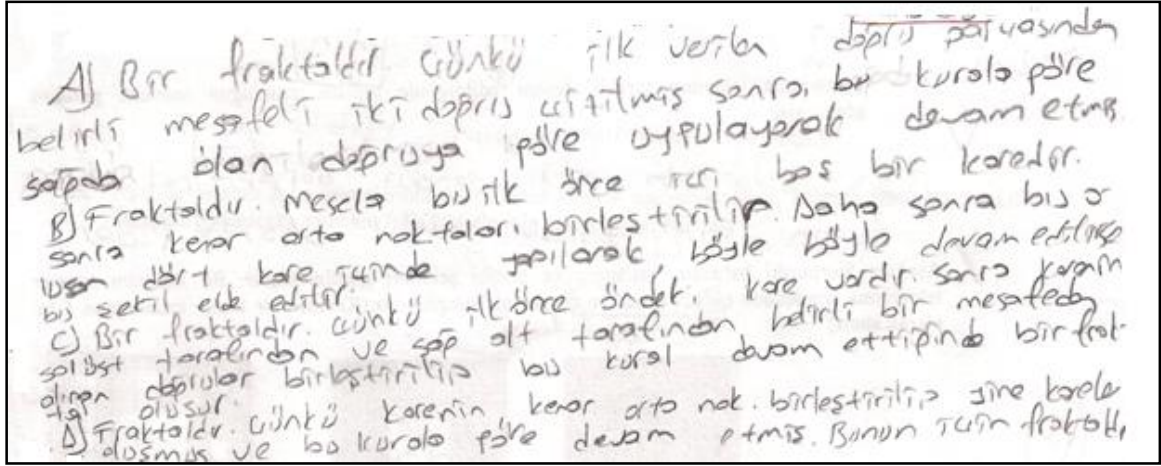 A) Bir fraktaldır çünkü ilk verilen doğru parçasından
belirli mesafeli iki doğru çizilmiş sonra, bu kurala göre
sağda olan doğruya göre uygulayarak devam etmiş.
B) Fraktaldır. Mesela bu ilk önce içi boş bir karedir.
sonra kenar orta noktaları birleştirilip. Daha sonra bu o
luşan dört kare içinde yapılarak, böyle böyle devam edilirse
bu şekil elde edilir.
C) Bir fraktaldır. Çünkü ilk önce öndeki kare vardır. sonra karenin
sol üst tarafından ve sağ alt tarafından belirli bir mesafeden
alınan doğrular birleştirilip bu kural devam ettiğinde bir frak-
tal oluşur.
D) Fraktaldır. Çünkü karenin kenar orta nok. birleştirilip yine kareler
oluşmuş ve bu kurala göre devam etmiş. Bunun için fraktaldı